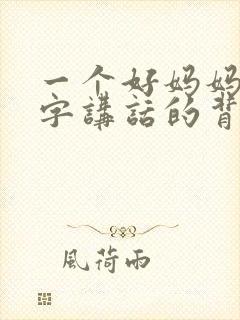 一个好妈妈
字講話的背
風荷雨